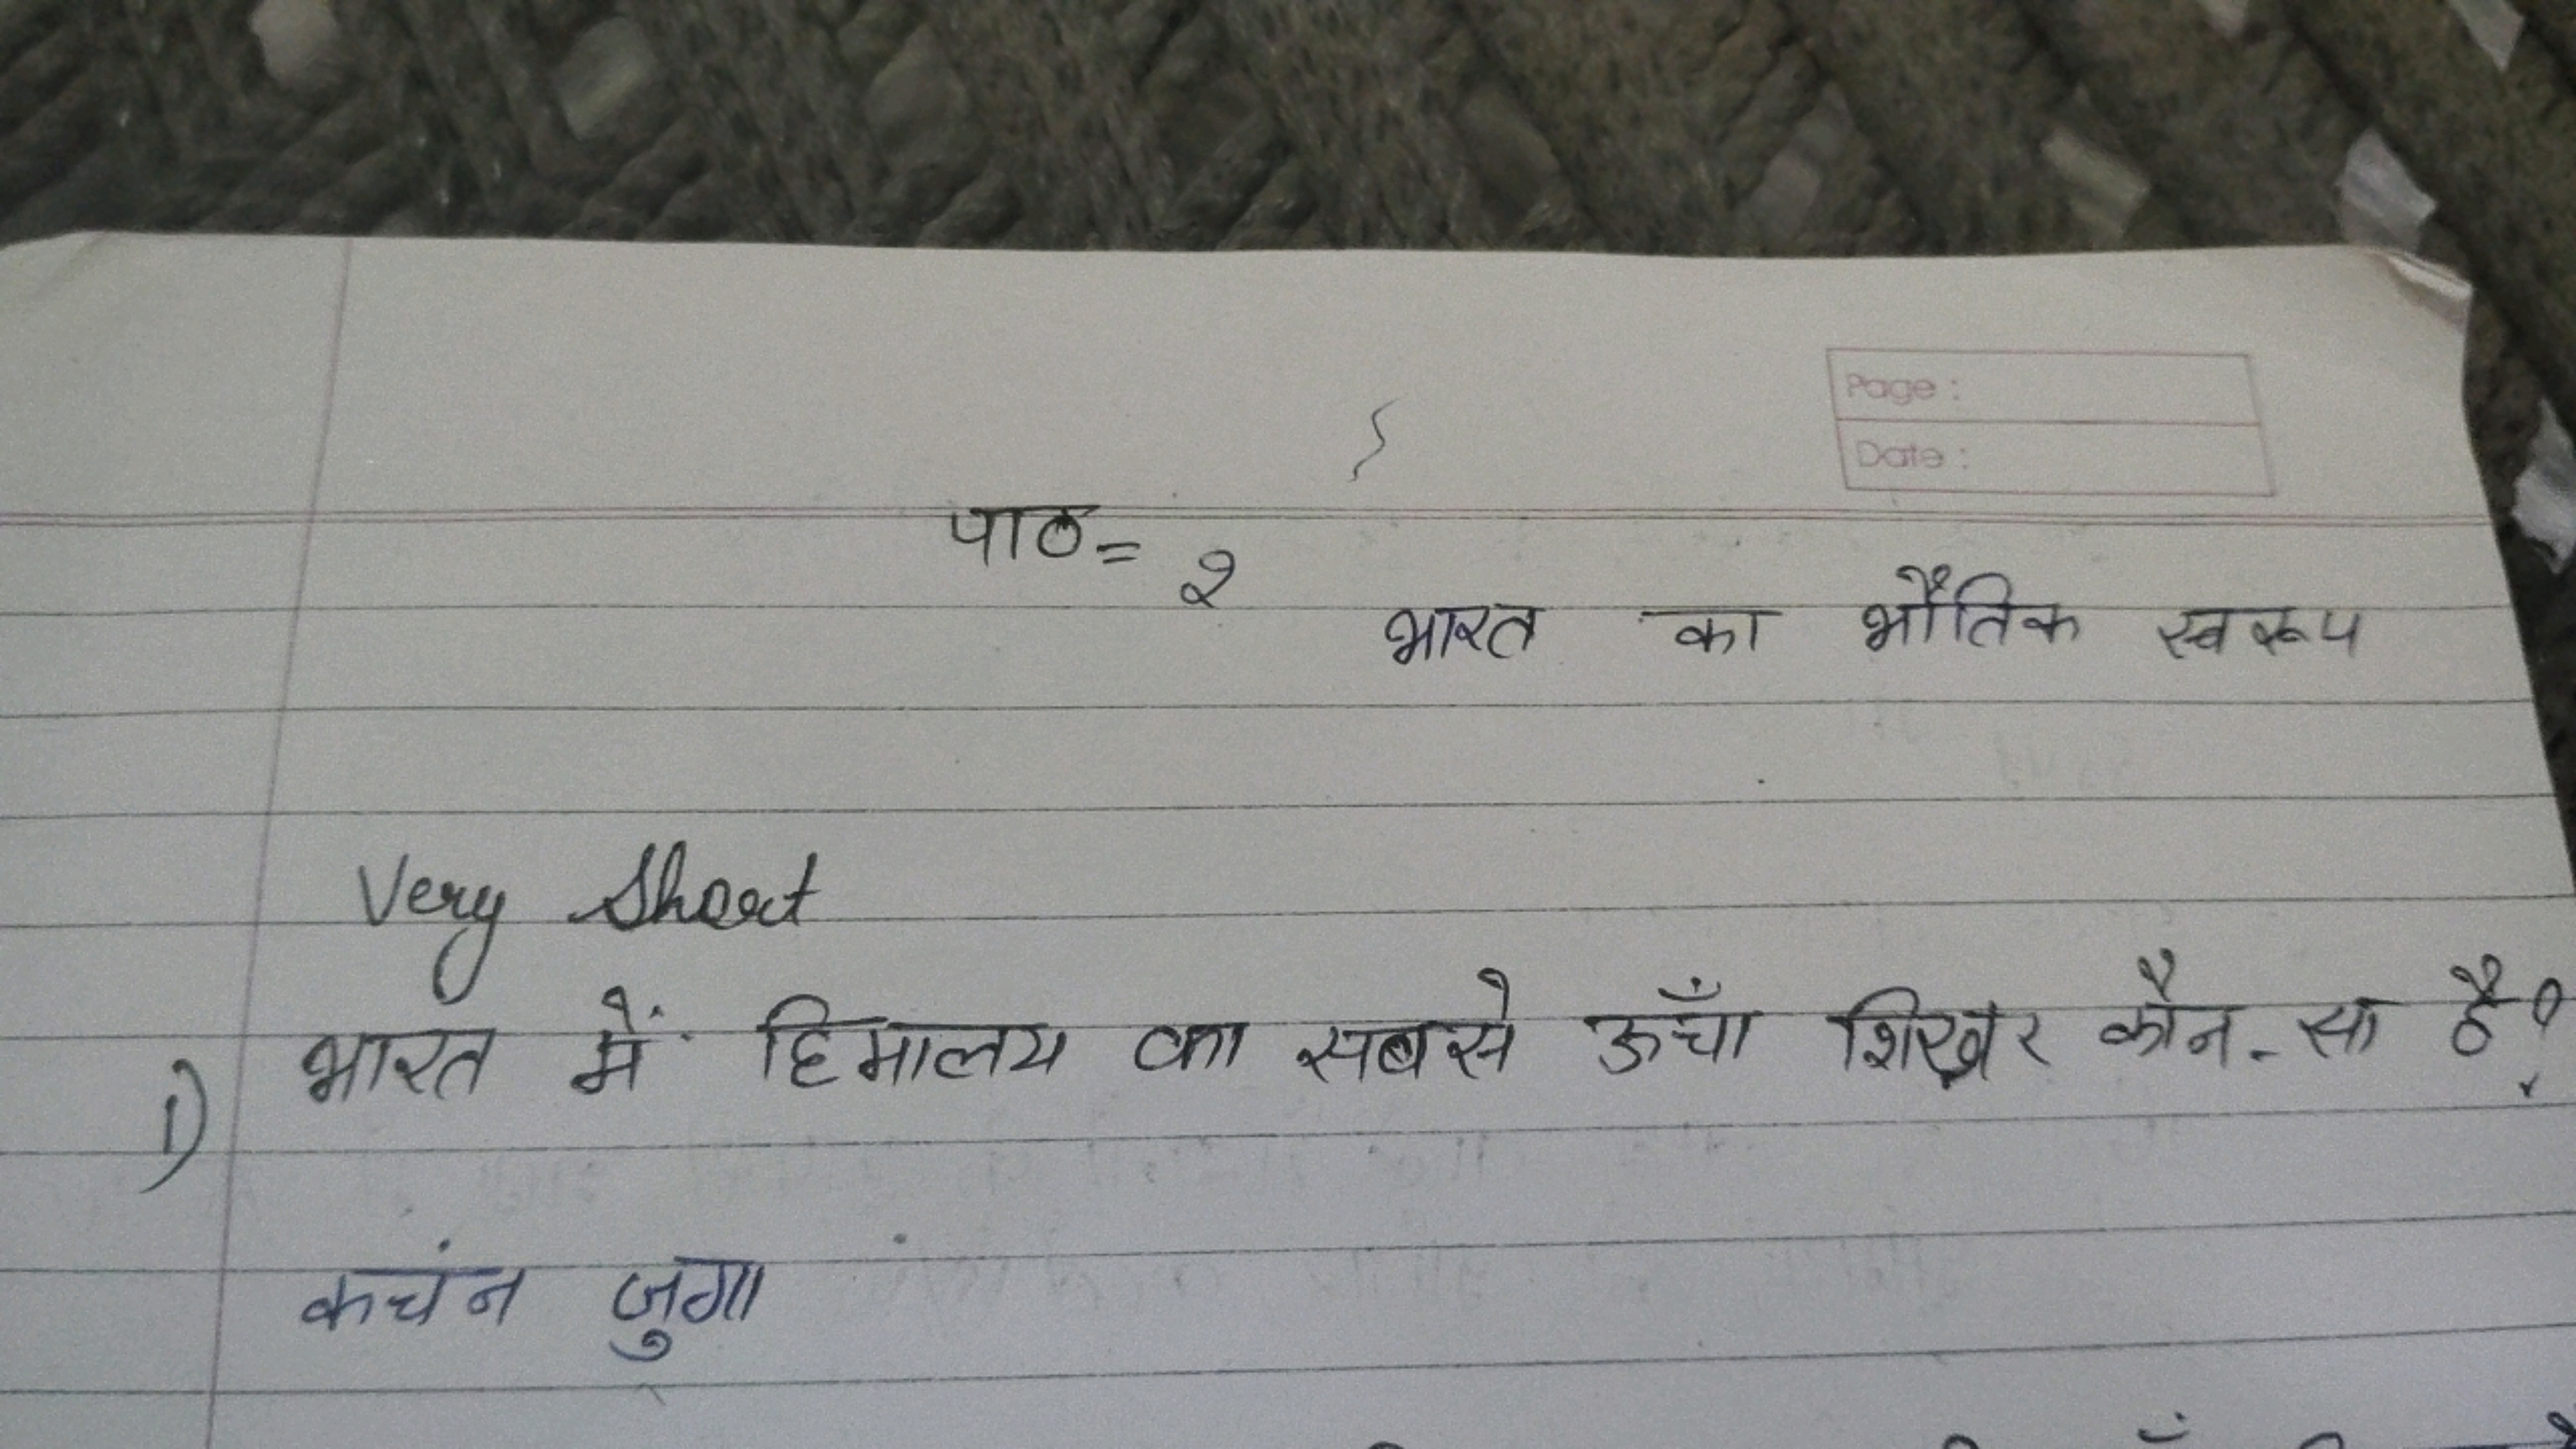 Page :
Date :
पाठ = २
भारत का भौतिक स्वरूप
Very Short
1) भारत में हिमालय का सबसे ऊँचा शिखर कौन-सा है?
कचंन जुगा